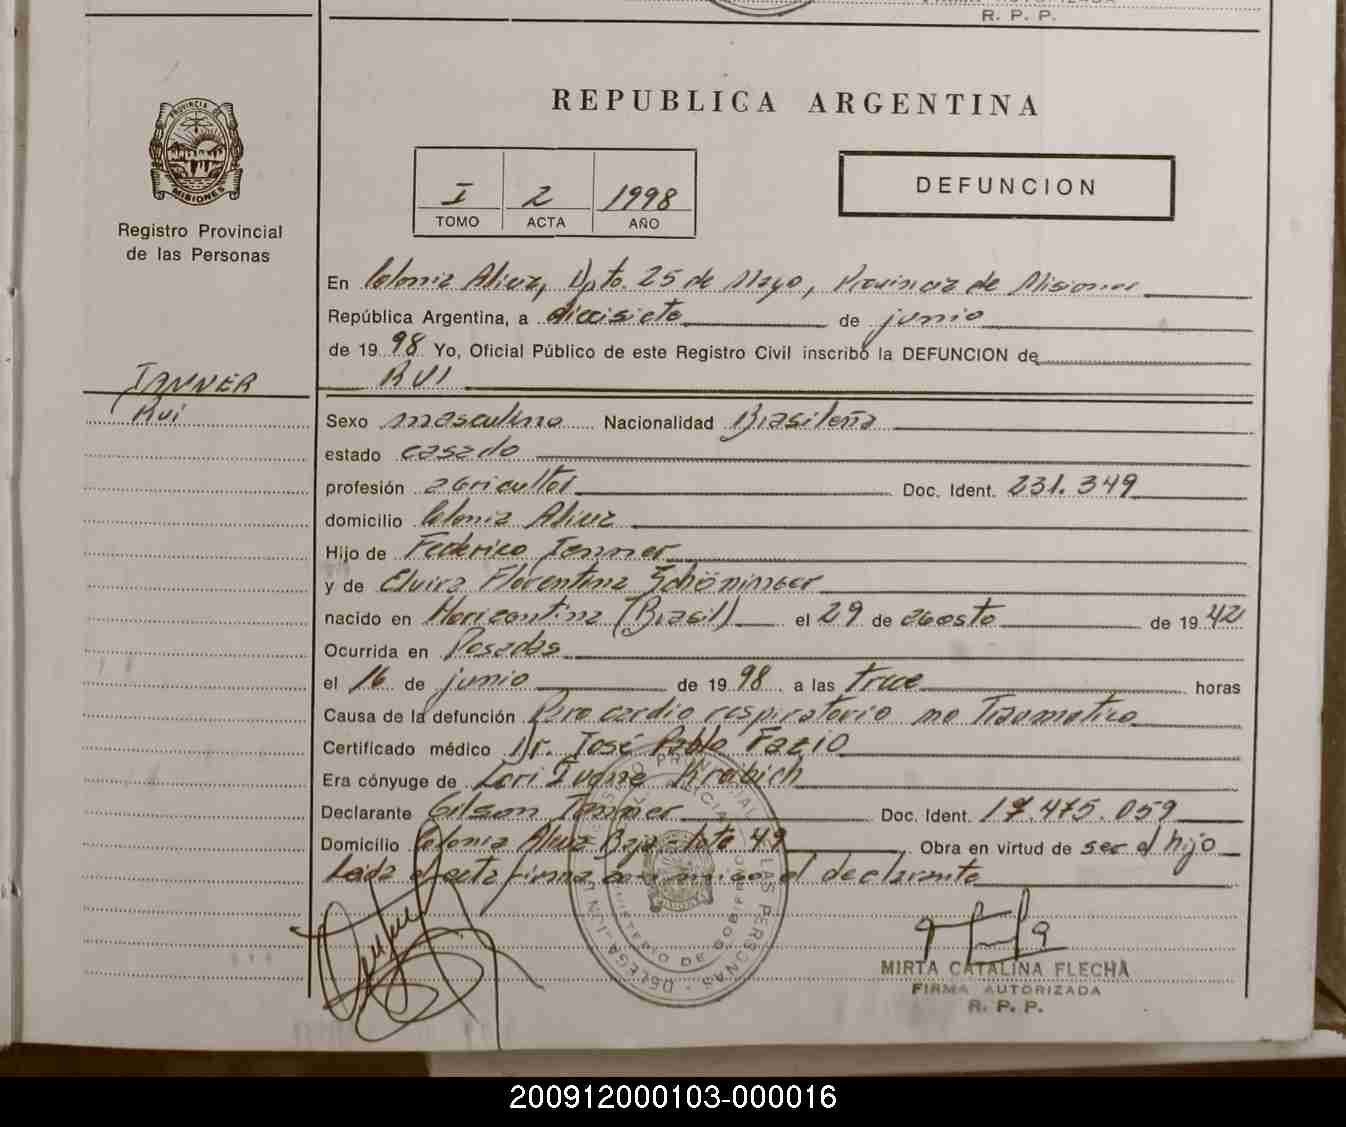 R. P. P.
PROVINCIA DE
MISIONES
Registro Provincial
de las Personas
REPUBLICA ARGENTINA
I 2 1998
TOMO ACTA AÑO
DEFUNCION
En Colonia Alicia, Dpto. 25 de Mayo, Provincia de Misiones
República Argentina, a diecisiete de junio
de 1998 Yo, Oficial Público de este Registro Civil inscribo la DEFUNCION de
TANNER RUI
Rui
Sexo masculino Nacionalidad Brasileña
estado casado
profesión agricultor Doc. Ident. 231.349
domicilio Colonia Alicia
Hijo de Federico Tanner
y de Elvira Florentina Schöninger
nacido en Horizontina (Brasil) el 29 de agosto de 1942
Ocurrida en Posadas
el 16 de junio de 1998 a las trece horas
Causa de la defunción Paro cardio respiratorio no Traumatico
Certificado médico Dr. José Pablo Fazio
Era cónyuge de Lori Krabich
Declarante Gilson Tanner Doc. Ident. 17.475.059
Domicilio Colonia Alicia Baja - lote 49 Obra en virtud de ser el hijo
Leida el acta firma conmigo el declarante
MIRTA CATALINA FLECHA
FIRMA AUTORIZADA
R. P. P.
200912000103-000016